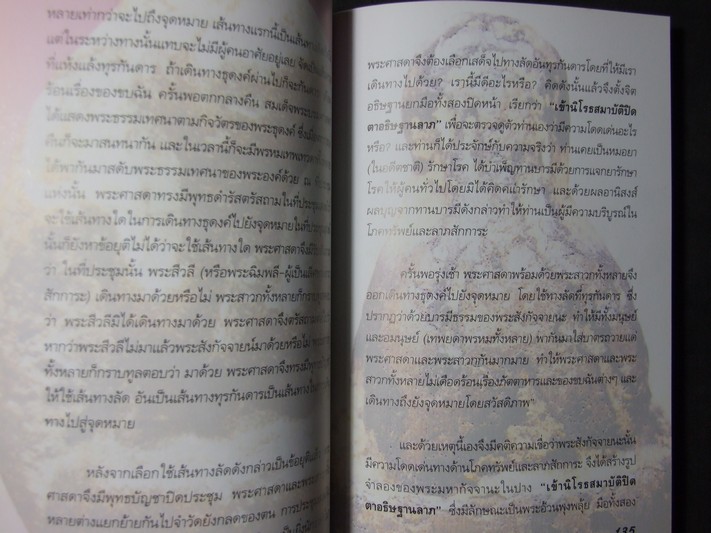 หลายเท่ากว่าจะไปถึงจุดหมาย เส้นทางแรกนี้เป็นเส้นทาง
แต่ในระหว่างทางนั้นแทบจะไม่มีผู้คนอาศัยอยู่เลย
ที่แห้งแล้งทุรกันดาร ถ้าเดินทางธุดงค์ผ่านไปก็จะ
ร้อนเรื่องของขบฉัน ครั้นพอตกกลางคืน สมเด็จพระ
ได้แสดงพระธรรมเทศนาตามกิจวัตรของพระธุดงค์
คืนก็จะมาสนทนากัน และในเวลานี้ก็จะมีพรหมเทพเทวดา
ได้พากันมาสดับพระธรรมเทศนาของพระองค์ด้วย ณ
แห่งนั้น พระศาสดาทรงมีพุทธดำรัสตรัสถามในที่ประชุม
จะใช้เส้นทางใดในการเดินทางธุดงค์ไปยังจุดหมายในที่
นั้นก็ยังหาข้อยุติไม่ได้ว่าจะใช้เส้นทางใด พระศาสดาจึง
ว่า ในที่ประชุมนั้น พระสีวลี (หรือพระฉิมพลี-ผู้เป็น
สักการะ) เดินทางมาด้วยหรือไม่ พระสาวกทั้งหลายก็กราบ
ว่า พระสีวลีมิได้เดินทางมาด้วย พระศาสดาจึงตรัส
หากว่าพระสีวลีไม่มาแล้วพระสังกัจจายน์มาด้วยหรือไม่
ทั้งหลายก็กราบทูลตอบว่า มาด้วย พระศาสดาจึงทรงมี
ให้ใช้เส้นทางลัด อันเป็นเส้นทางทุรกันดารเป็นเส้นทางใน
ทางไปสู่จุดหมาย
หลังจากเลือกใช้เส้นทางลัดดังกล่าวเป็นข้อยุติ
ศาสดาจึงมีพุทธบัญชาปิดประชุม พระศาสดาและพระ
หลายต่างแยกย้ายกันไปจำวัดยังกลดของตน การ
พระศาสดาจึงต้องเลือกเสด็จไปทางลัดอันทุรกันดารโดยที่ให้มีเรา
เดินทางไปด้วย? เรานี้มีดีอะไรหรือ? คิดดังนั้นแล้วจึงตั้งจิต
อธิษฐานยกมือทั้งสองปิดหน้า เรียกว่า "เข้านิโรธสมาบัติปิด
ตาอธิษฐานลาภ" เพื่อจะตรวจดูตัวท่านเองว่ามีความโดดเด่นอะไร
หรือ? และท่านก็ได้ประจักษ์กับความจริงว่า ท่านเคยเป็นหมอยา
(ในอดีตชาติ) รักษาโรค ได้บำเพ็ญทานบารมีด้วยการแจกยารักษา
โรคให้ผู้คนทั่วไปโดยมิได้คิดค่ารักษา และด้วยผลอานิสงส์
ผลบุญจากทานบารมีดังกล่าวทำให้ท่านเป็นผู้มีความบริบูรณ์ใน
โภคทรัพย์และลาภสักการะ
ครั้นพอรุ่งเช้า พระศาสดาพร้อมด้วยพระสาวกทั้งหลายจึง
ออกเดินทางธุดงค์ไปยังจุดหมาย โดยใช้ทางลัดที่ทุรกันดาร ซึ่ง
ปรากฏว่าด้วยบารมีธรรมของพระสังกัจจายนะ ทำให้มีทั้งมนุษย์
และอมนุษย์ (เทพยดาพรหมทั้งหลาย) พากันมาใส่บาตรถวายแต่
พระศาสดาและพระสาวกกันมากมาย ทำให้พระศาสดาและพระ
สาวกทั้งหลายไม่เดือดร้อนเรื่องภัตตาหารและของขบฉันต่างๆ และ
เดินทางถึงยังจุดหมายโดยสวัสดิภาพ"
และด้วยเหตุนี้เองจึงมีคติความเชื่อว่าพระสังกัจจายนะนั้น
มีความโดดเด่นทางด้านโภคทรัพย์และลาภสักการะ จึงได้สร้างรูป
จำลองของพระมหากัจจานะในปาง "เข้านิโรธสมาบัติปิด
ตาอธิษฐานลาภ" ซึ่งมีลักษณะเป็นพระอ้วนพุงพลุ้ย มือทั้งสอง
135